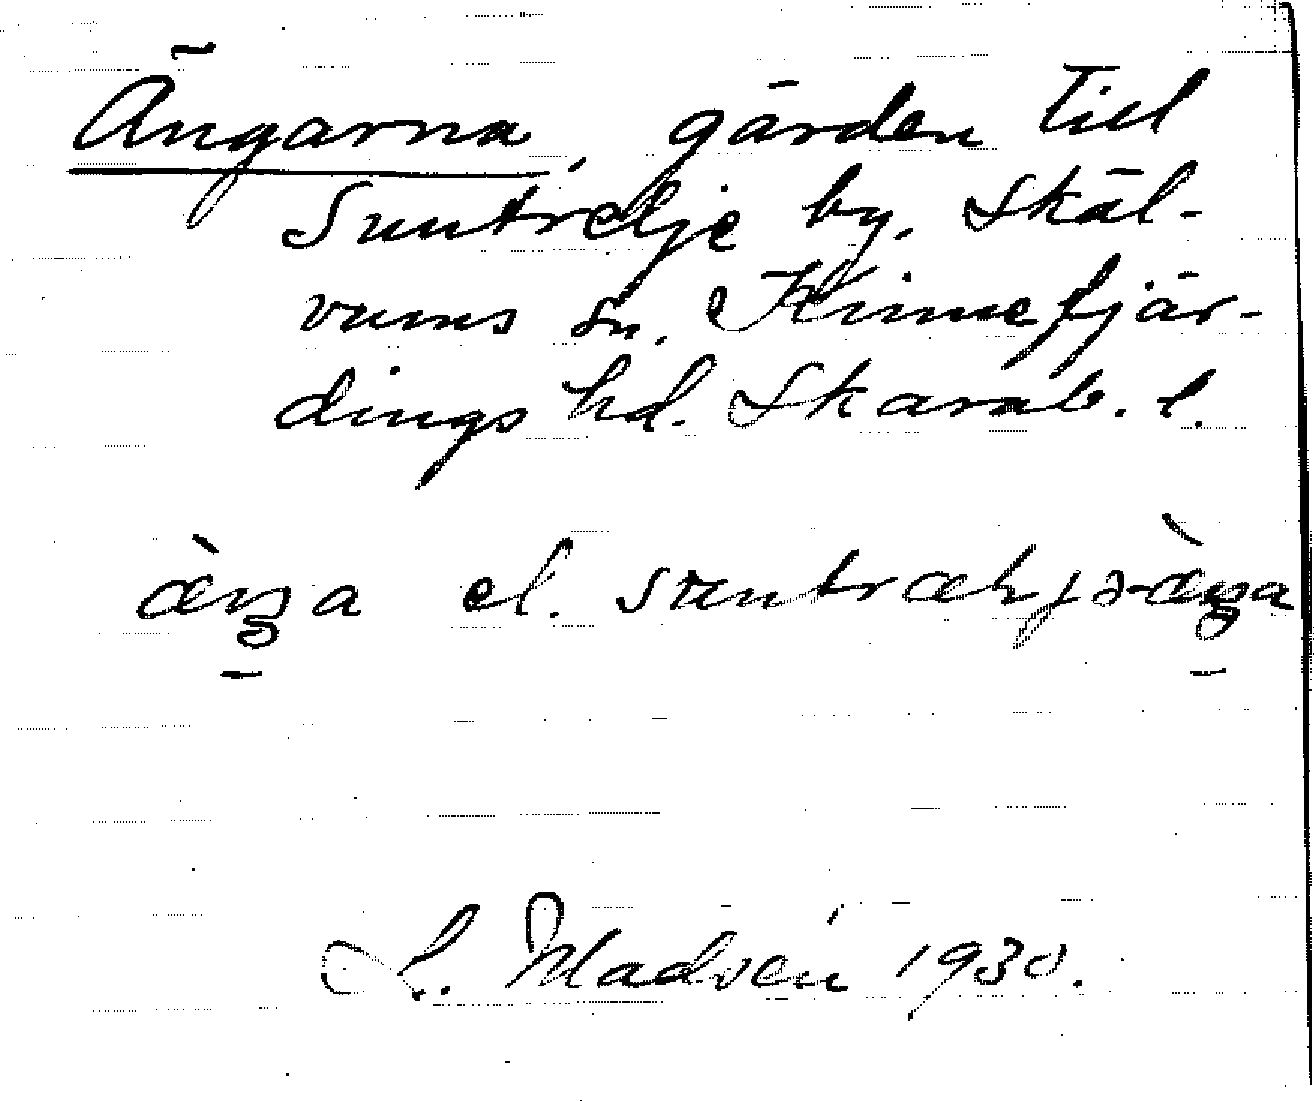 Ängarna, gärden till
Suntrelje by, Skäl-
vums sn, Kinnefjär-
dings hd. Skarab. l.
æ̀ŋa el. suntræljə-æ̀ŋa
L. Modvén 1930.